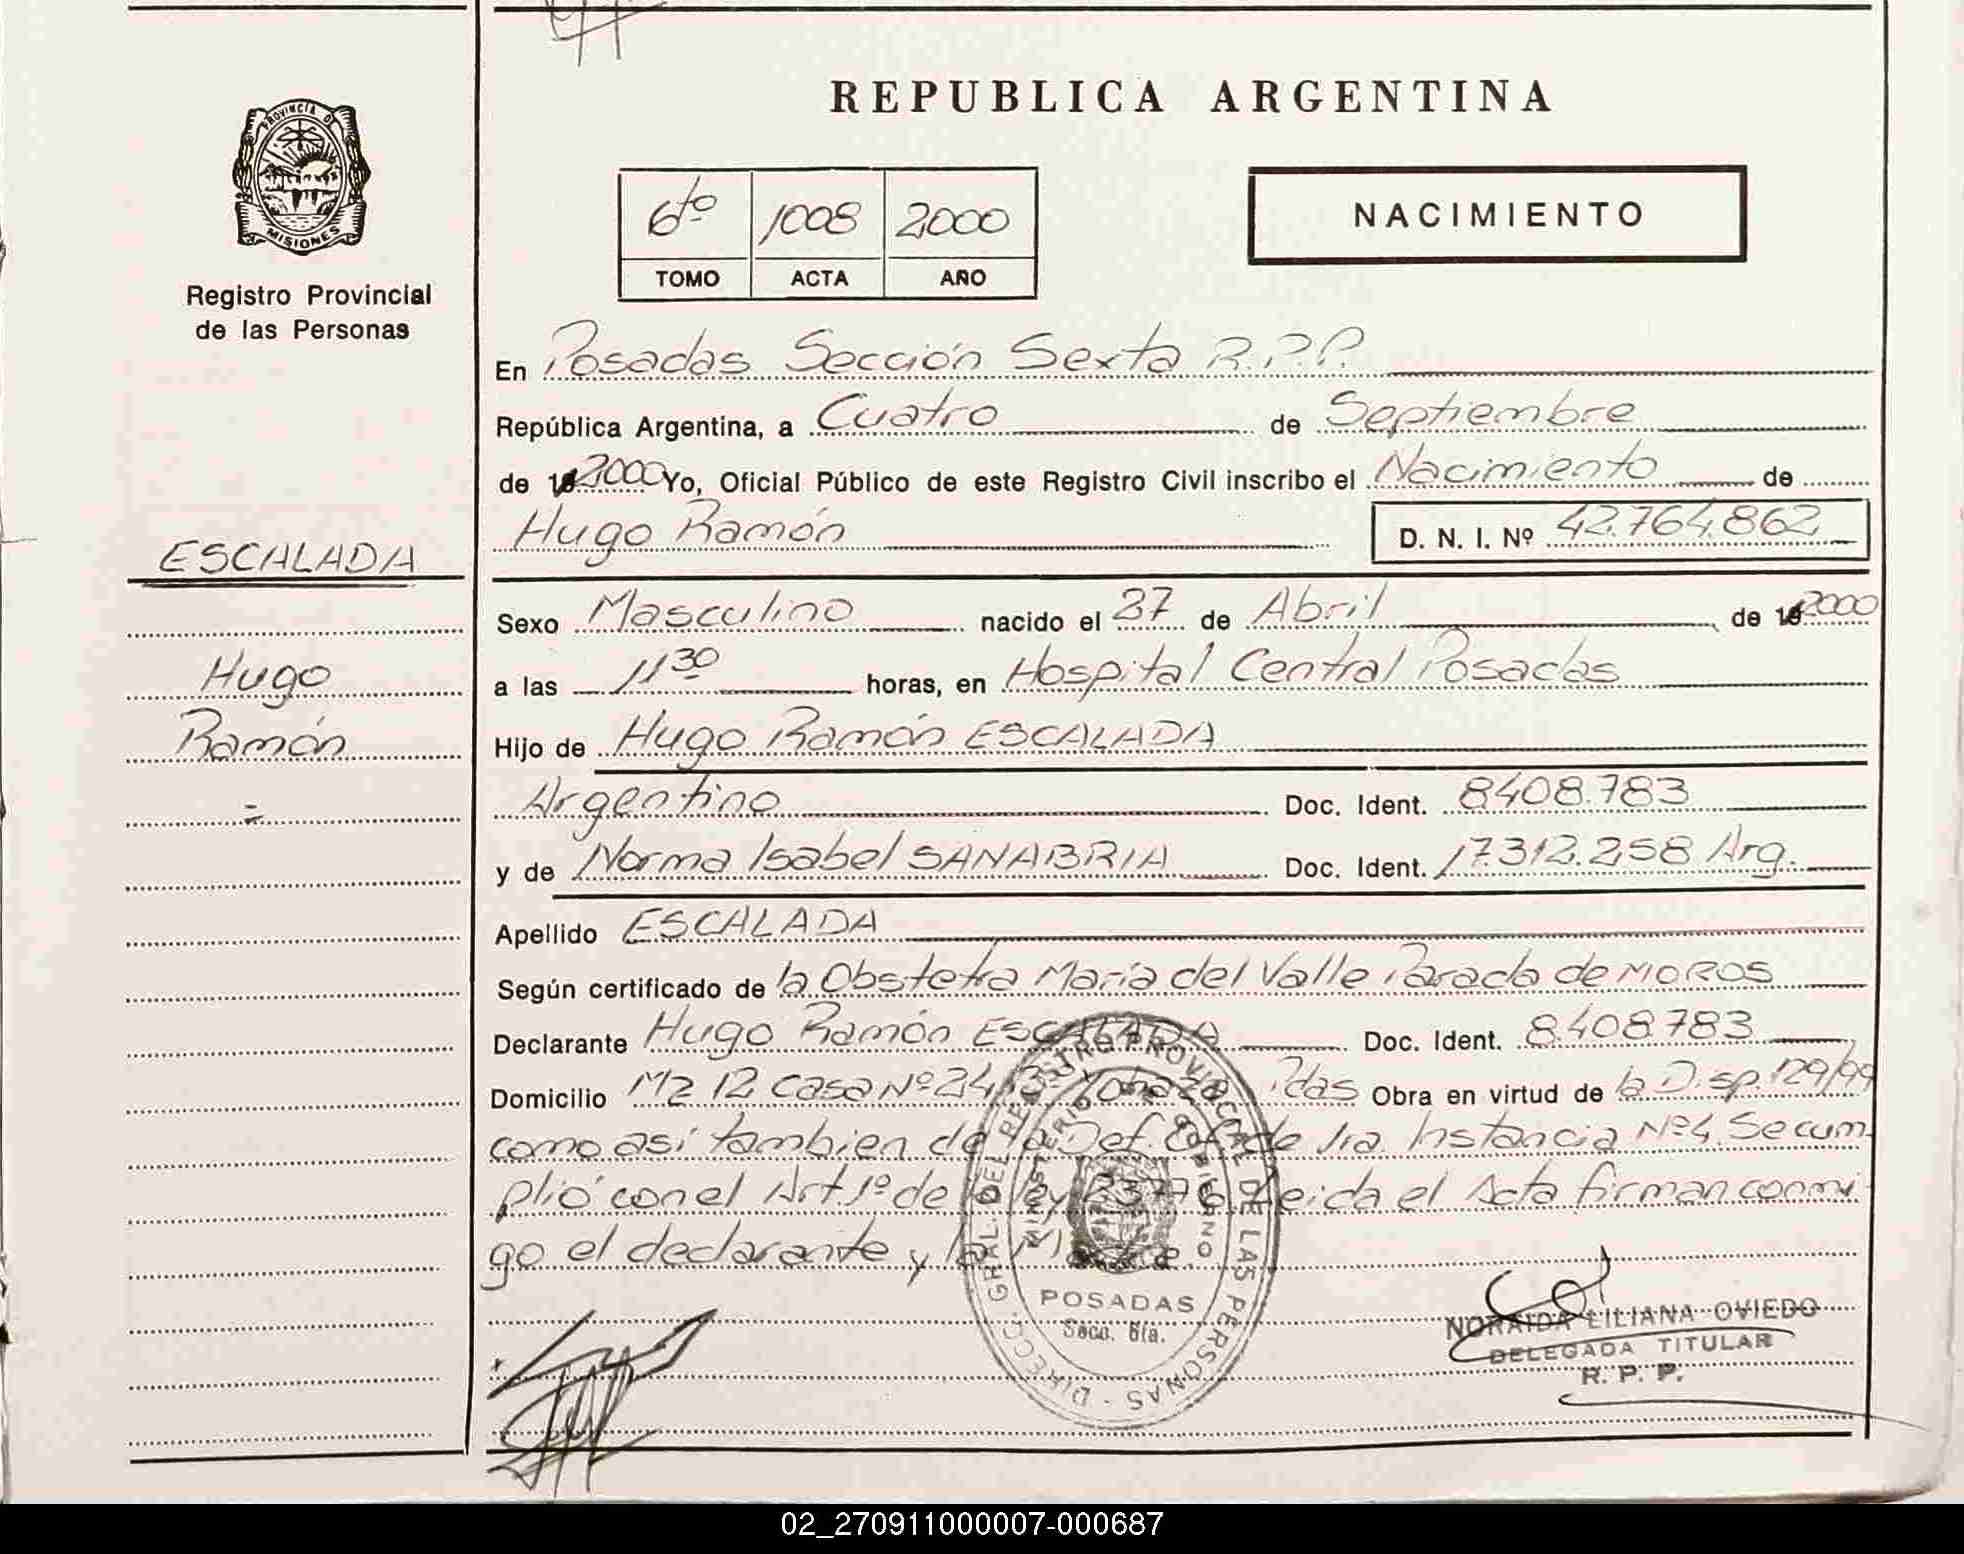 REPUBLICA ARGENTINA
PROVINCIA DE
MISIONES
Registro Provincial
de las Personas
6to 1008 2000
TOMO ACTA AÑO
NACIMIENTO
En Posadas Sección Sexta R.P.P.
República Argentina, a Cuatro de Septiembre
de 19 2000 Yo, Oficial Público de este Registro Civil inscribo el Nacimiento de
Hugo Ramón D. N. I. Nº 42.764.862
ESCALADA
Hugo
Ramón
=
Sexo Masculino nacido el 27 de Abril de 19 2000
a las 11 30 horas, en Hospital Central Posadas
Hijo de Hugo Ramón ESCALADA
Argentino Doc. Ident. 8.408.783
y de Norma Isabel SANABRIA Doc. Ident. 17.312.258 Arg.
Apellido ESCALADA
Según certificado de la Obstetra María del Valle Parada de MOROS
Declarante Hugo Ramón ESCALADA Doc. Ident. 8.408.783
Domicilio Mz 12 Casa Nº Pdas Obra en virtud de la Disp. 129/99
como así tambien de la Def. Of. de 1ra. Instancia Nº4. Se cum-
plió con el Art. 1º de la Ley 23776 Leida el Acta firman conmi-
go el declarante y la Madre.
DIRECC. GRAL. DEL REGISTRO PROVINCIAL DE LAS PERSONAS
MINISTERIO DE GOBIERNO
POSADAS
Secc. 6ta.
NORAIDA LILIANA OVIEDO
DELEGADA TITULAR
R. P. P.
02_270911000007-000687